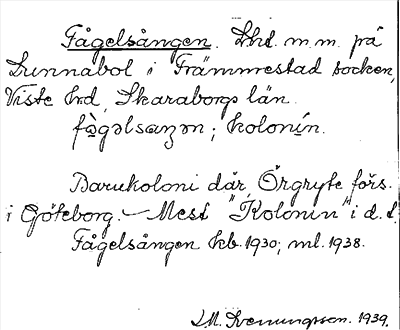 Fågelsången. Lht. m.m. på
Lunnabol i Främmestad socken,
Viste hrd, Skaraborgs län.
fògəlsaŋən; kolonín.
Barnkoloni där, Örgryte förs.
i Göteborg. – Mest "Kolonin" i d. t.
Fågelsången kb. 1930; ml. 1938.
1939.